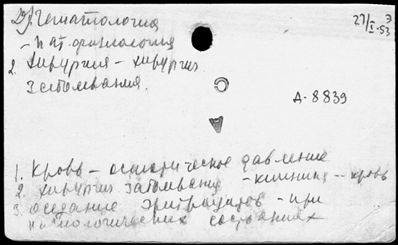 Гематология
27/I-53
- пат. физиология
2. Хирургия - хирургич.
заболевания.
А-8839
1. Кровь - осмотическое давление
2. Хирургич. заболевания - клиника - кровь
3. оседание эритроцитов - при
патологических состояниях